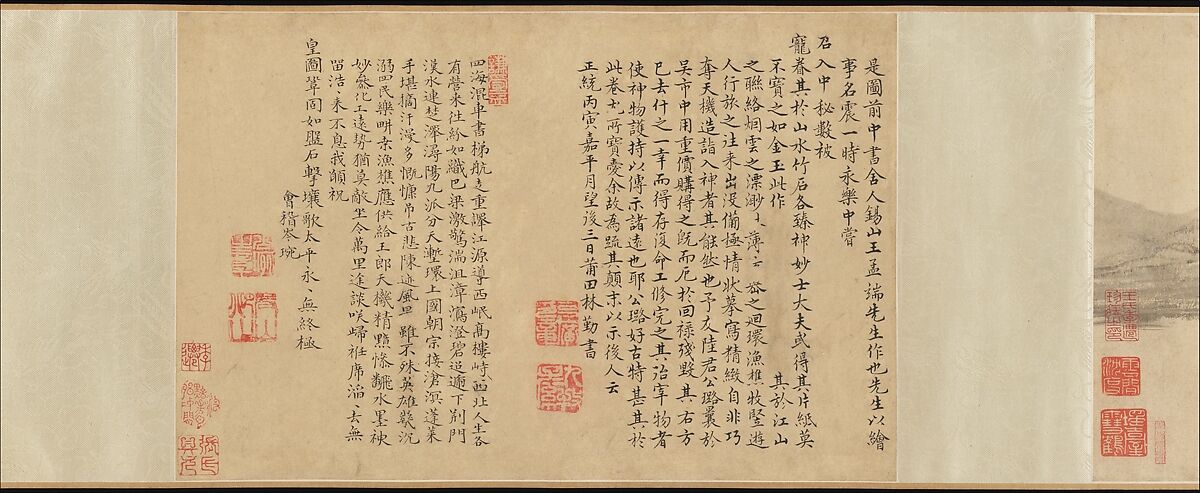 是圖前中書舍人錫山王孟端先生作也先生以繪
事名震一時永樂中嘗
召入中秘數被
寵眷其於山水竹石各臻神妙士大夫或得其片紙莫
不寶之如金玉此作 其於江山
之聯絡烟雲之漂渺 之迴環漁樵牧豎遊
人行旅之往來出没備極情狀摹寫精緻自非巧
奪天機造詣入神者其能然也予友陸君公璐曩於
吴市中用重價購得之既而厄於回祿殘毀其右方
已去什之一幸而得存復命工修完之其殆宰物者
使神物護持以傳示諸遠也耶公璐好古特甚其於
此卷尤所寶愛余故為疏其顛末以示後人云
正統丙寅嘉平月望後三日莆田林勤書
四海混車書梯航走重譯江源導西岷高樓峙西北人生各
有營來往紛如織巴梁激驚湍沮漳瀉澄碧迢遞下荆門
漢水連楚澤潯陽九派分天塹環上國朝宗接滄溟蓬萊
手堪摘汗漫多慨慷吊古悲陳迹風景雖不殊英雄幾沉
溺四民樂畊桑漁樵應供給王郎天機精黯慘翻水墨神
妙奪化工遠勢猶莫敵坐令萬里途談咲歸袵席滔滔去無
留浩浩來不息我願祝
皇圖鞏固如盤石擊壤歌太平永永無終極
會稽岑琬